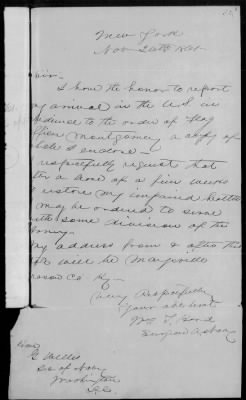 New York
Nov 20th 1861
Sir.
I have the honor to report
my arrival in the U.S. in
obedience to the order of Flag
Officer Montgomery a copy of
which I endorse—
I respectfully request that
after a leave of a few weeks
to restore my impaired health
I may be ordered to serve
with some division of the
Army.
My address from & after this
date will be Maysville
Mason Co Ky—
Very Respectfully
Your obt Servt
Surgeon U.S. Navy
Hon
G Welles
Sec of Navy
Washington
D.C.